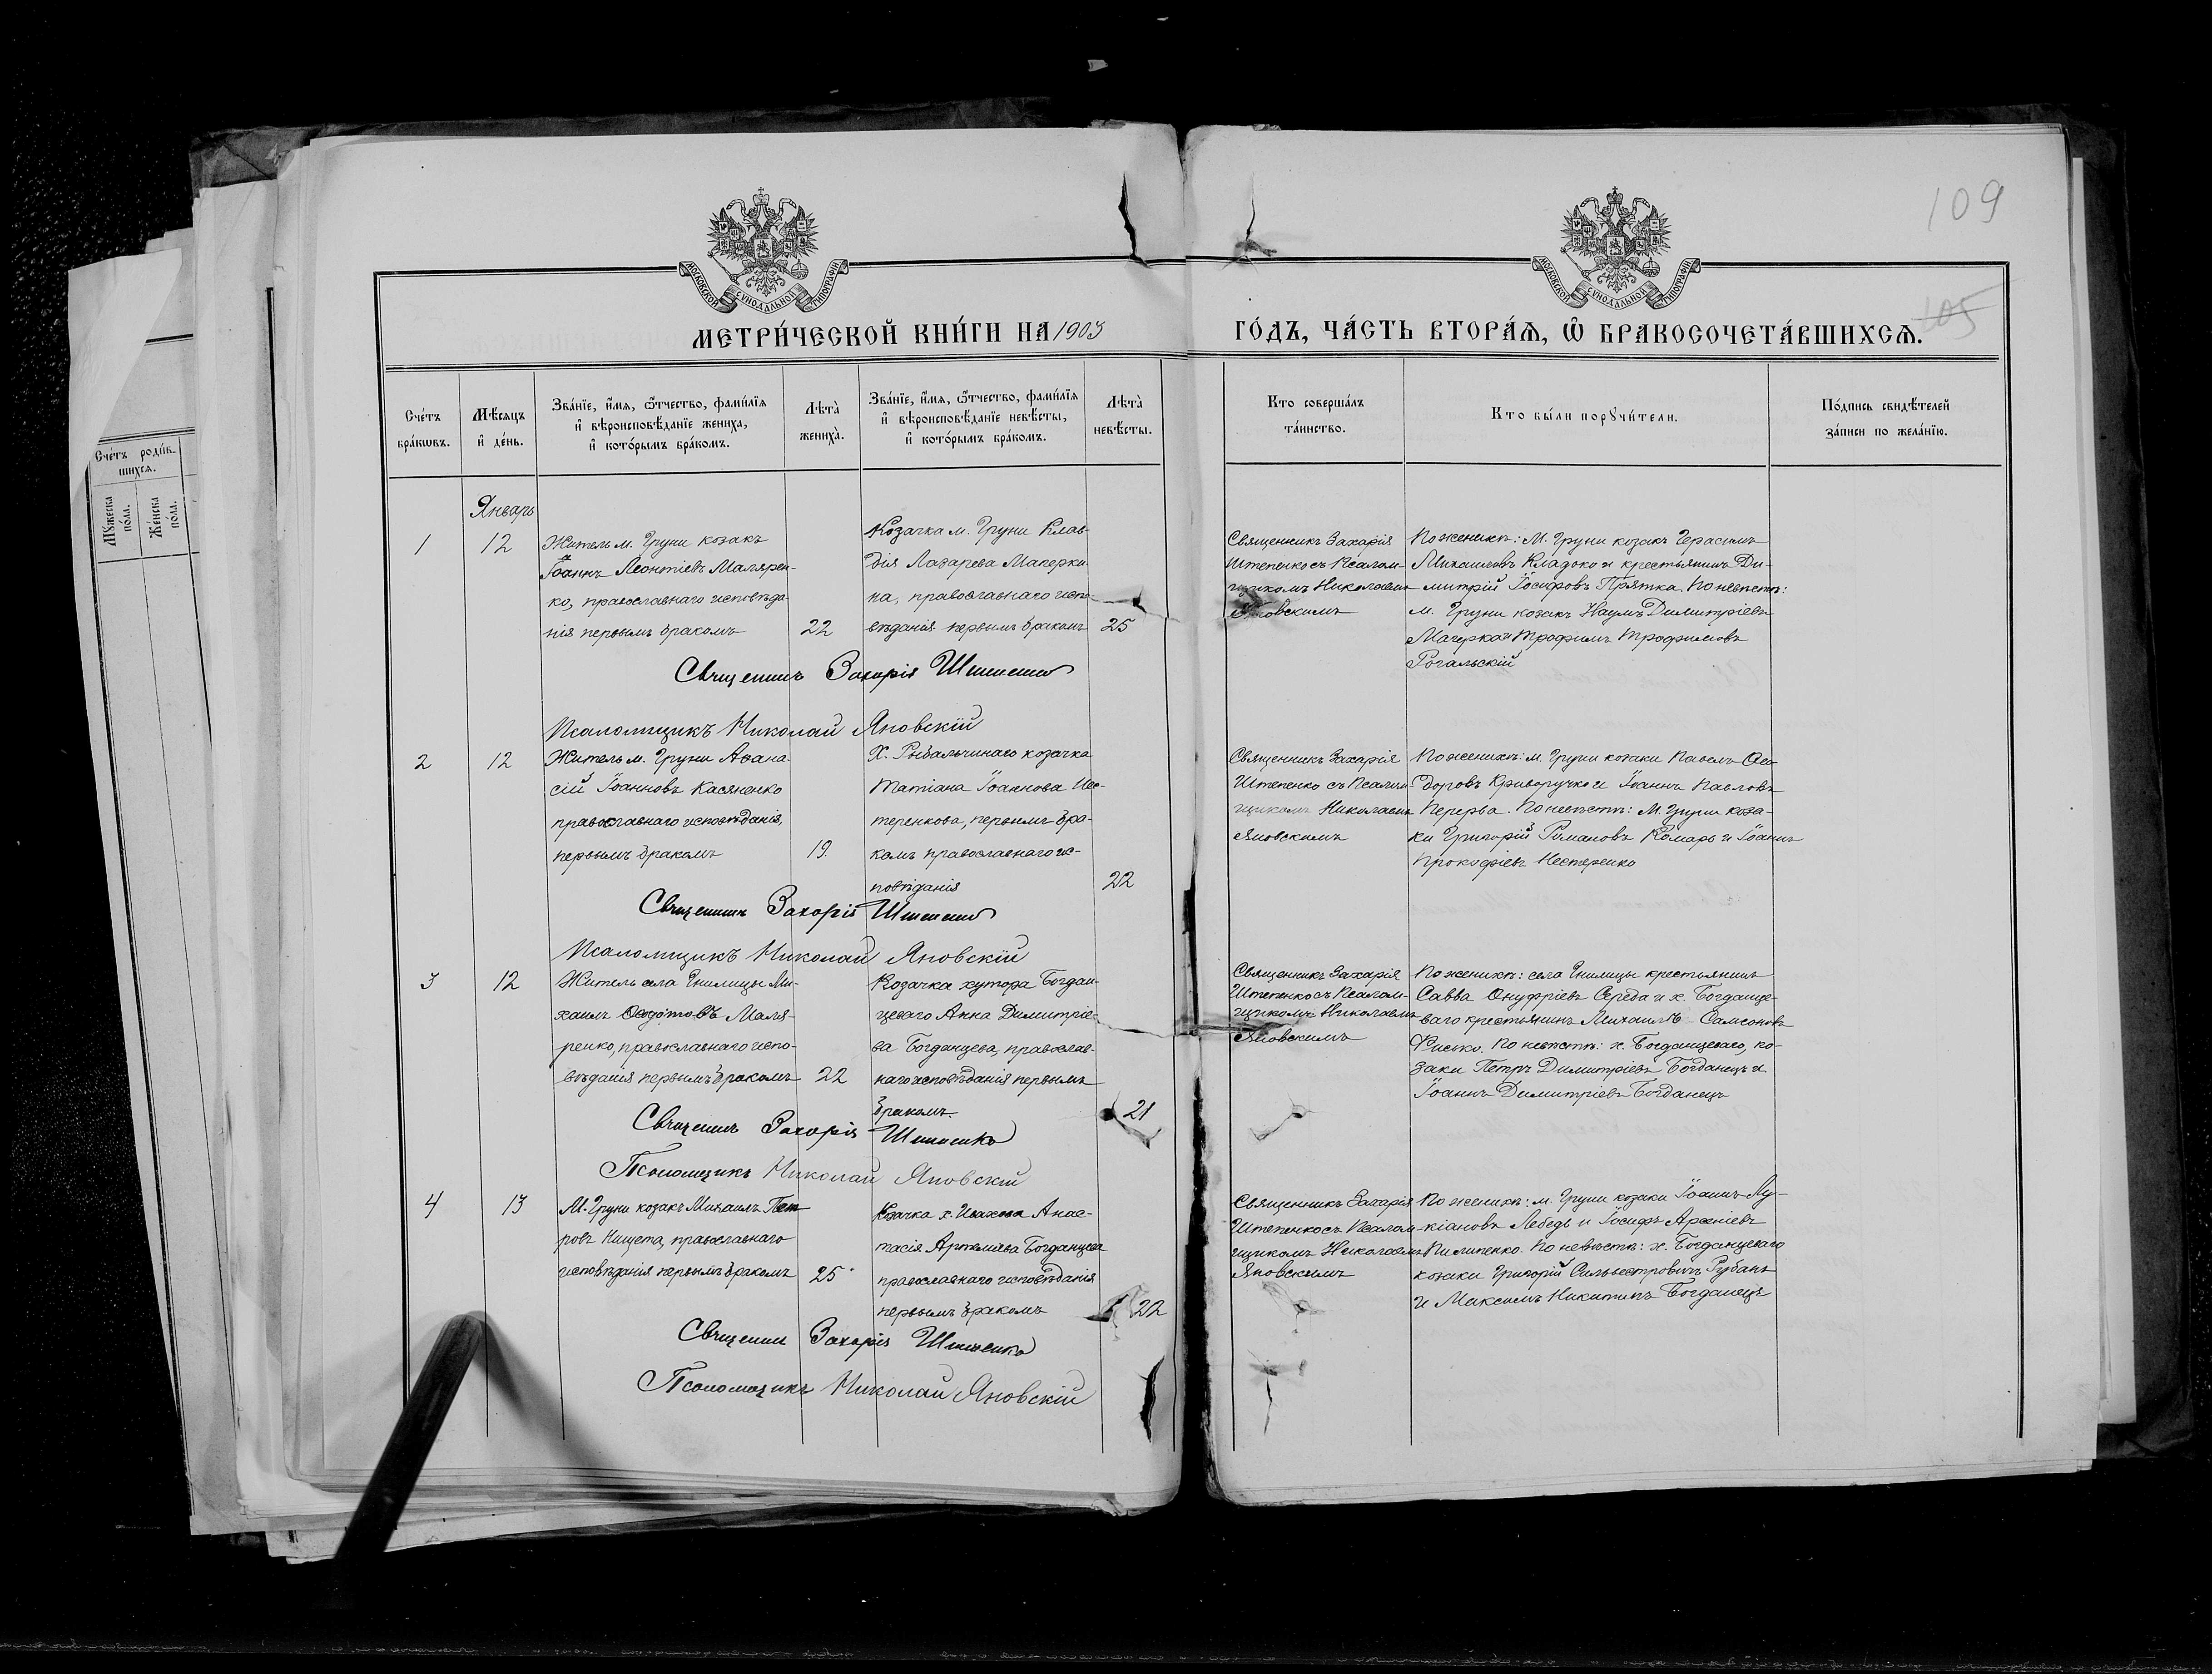 109
105
МОСКОВСКОЙ СѴНОДАЛЬНОЙ ТИПОГРАФІИ
МОСКОВСКОЙ СѴНОДАЛЬНОЙ ТИПОГРАФІИ
МЕТРИ́ЧЕСКОЙ КНИ́ГИ НА 1903
ГО́ДЪ, ЧА́СТЬ ВТОРА́Ѧ, Ѽ БРАКОСОЧЕТА́ВШИХСѦ.
Сче́тъ бра́кѡвъ.
Мѣ́сяцъ и҆ де́нь.
Зва́нїе, и҆́мѧ, ѻ҆́тчество, фами́лїѧ
и҆ вѣроисповѣ́данїе жениха̀,
и҆ кото́рымъ бра́комъ.
Лѣта̀ жениха̀.
Зва́нїе, и҆́мѧ, ѻ҆́тчество, фами́лїѧ
и҆ вѣроисповѣ́данїе невѣ́сты,
и҆ кото́рымъ бра́комъ.
Лѣта̀ невѣ́сты.
Кто соверша́лъ
та́инство.
Кто бы́ли порꙋчи́тели.
По́дпись свидѣ́телей
за́писи по жела́нїю.
Сче́тъ роди́в-
шихсѧ.
Мꙋ́жеска по́ла.
Же́нска по́ла.
Январь
1
12
Житель м. Груни козакъ
Іоаннъ Леонтіевъ Малярен-
ко, православнаго исповѣда-
нія первымъ бракомъ
22
Козачка м. Груни Клав-
дія Лазарева Мачерки-
на, православнаго испо-
вѣданія первымъ бракомъ
25
Священникъ Захарія
Штепенко съ Псалом-
щикомъ Николаемъ
Яновскимъ
По женихѣ: м. Груни козакъ Герасимъ
Михаиловъ Кладоко и крестьянинъ Ди-
митрій Іосифовъ Прятка. По невѣстѣ:
м. Груни козакъ Наумъ Димитріевъ
Мачерка и Трофимъ Трофимовъ
Рогальскій
Священникъ Захарія Штепенко
Псаломщикъ Николай Яновскій
2
12
Житель м. Груни Аѳана-
сій Іоанновъ Касяненко
православнаго исповѣданія,
первымъ бракомъ
19.
Х. Рыбальчинаго козачка
Татіана Іоаннова Нес-
теренкова, первымъ бра-
комъ православнаго ис-
повѣданія
22
Священникъ Захарія
Штепенко съ Псалом-
щикомъ Николаемъ
Яновскимъ
По женихѣ: м. Груни козаки Павелъ Ѳео-
доровъ Криворучко и Іоаннъ Павловъ
Перерва. По невѣстѣ: м. Груни коза-
ки Григорій Романовъ Комаръ и Іоаннъ
Прокофіевъ Нестеренко
Священникъ Захарія Штепенко
Псаломщикъ Николай Яновскій
3
12
Житель села Гнилицы Ми-
хаилъ Ѳедотовъ Маля-
ренко, православнаго испо-
вѣданія первымъ бракомъ
22
Козачка хутора Богдан-
цеваго Анна Димитріе-
ва Богданцева, православ-
наго исповѣданія первымъ
бракомъ.
21
Священникъ Захарія
Штепенко съ Псалом-
щикомъ Николаемъ
Яновскимъ
По женихѣ: села Гнилицы крестьянинъ
Савва Онуфріевъ Середа и х. Богданце-
ваго крестьянинъ Михаилъ Самсоновъ
Фисько. По невѣстѣ: х. Богданцеваго, ко-
заки Петръ Димитріевъ Богданецъ и
Іоаннъ Димитріевъ Богданецъ
Священникъ Захарія Штепенко
Псаломщикъ Николай Яновскій
4
13
М. Груни козакъ Михаилъ Пет-
ровъ Нищета, православнаго
исповѣданія первымъ бракомъ
25
Козачка х. Анас-
тасія Артемова Богданцева
православнаго исповѣданія
первымъ бракомъ
22
Священникъ Захарія
Штепенко съ Псалом-
щикомъ Николаемъ
Яновскимъ
По женихѣ: м. Груни козаки Іоаннъ Лу-
кіановъ Лебедь и Іосифъ Арсеніевъ
Пилипенко. По невѣстѣ: х. Богданцеваго
козаки Григорій Сильвестровичъ Рубанъ
и Максимъ Никитинъ Богданецъ
Священникъ Захарія Штепенко
Псаломщикъ Николай Яновскій